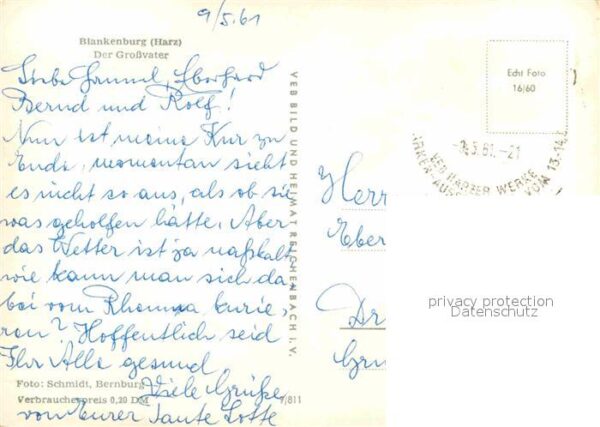 9/5.61
Blankenburg (Harz)
Der Großvater
Liebe Hannel, Eberhard
Bernd und Rolf!
Nun ist meine Kur zu
Ende, momentan sieht
es nicht so aus, als ob sie
was geholfen hätte. Aber
das Wetter ist ja naßkalt
wie kann man sich da
bei vom Rheuma kurie-
ren? Hoffentlich seid
Ihr Alle gesund
Viele Grüße
von Eurer Tante Lotte
Foto: Schmidt, Bernburg
Verbraucherpreis 0,20 DM
7/811
VEB BILD UND HEIMAT REICHENBACH I. V.
Echt Foto
16/60
5.61.-21
VEB HARZER WERKE
VOM 13.-14.
Herr
Eber
Dr
privacy protection
Datenschutz